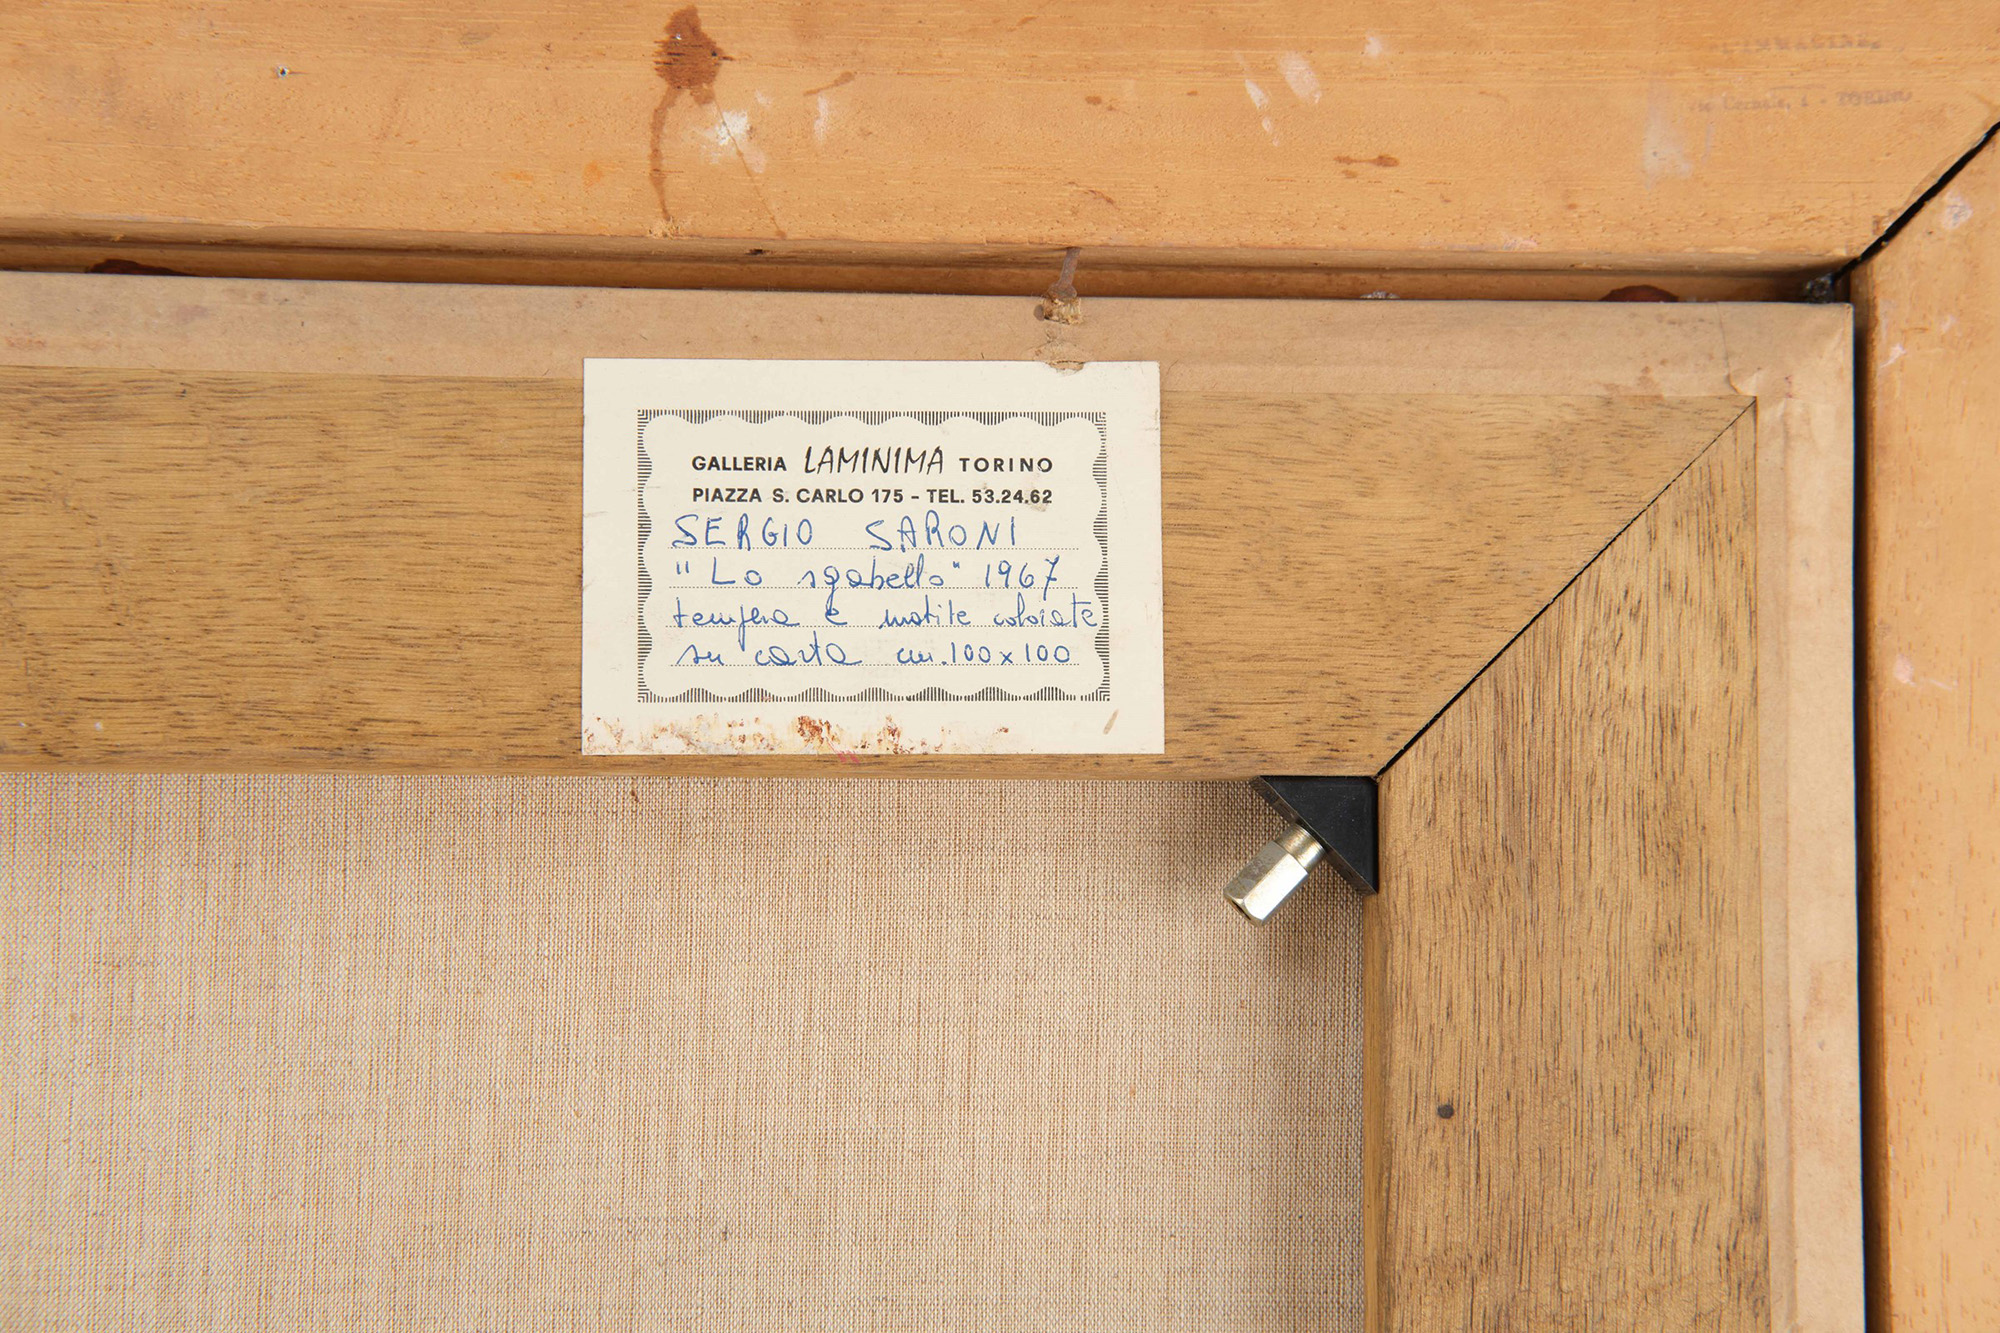 L'IMMAGINE
- TORINO
GALLERIA LAMINIMA TORINO
PIAZZA S. CARLO 175 - TEL. 53.24.62
SERGIO SARONI
"Lo sgabello" 1967
tempera e matite colorate
su carta cm. 100 x 100